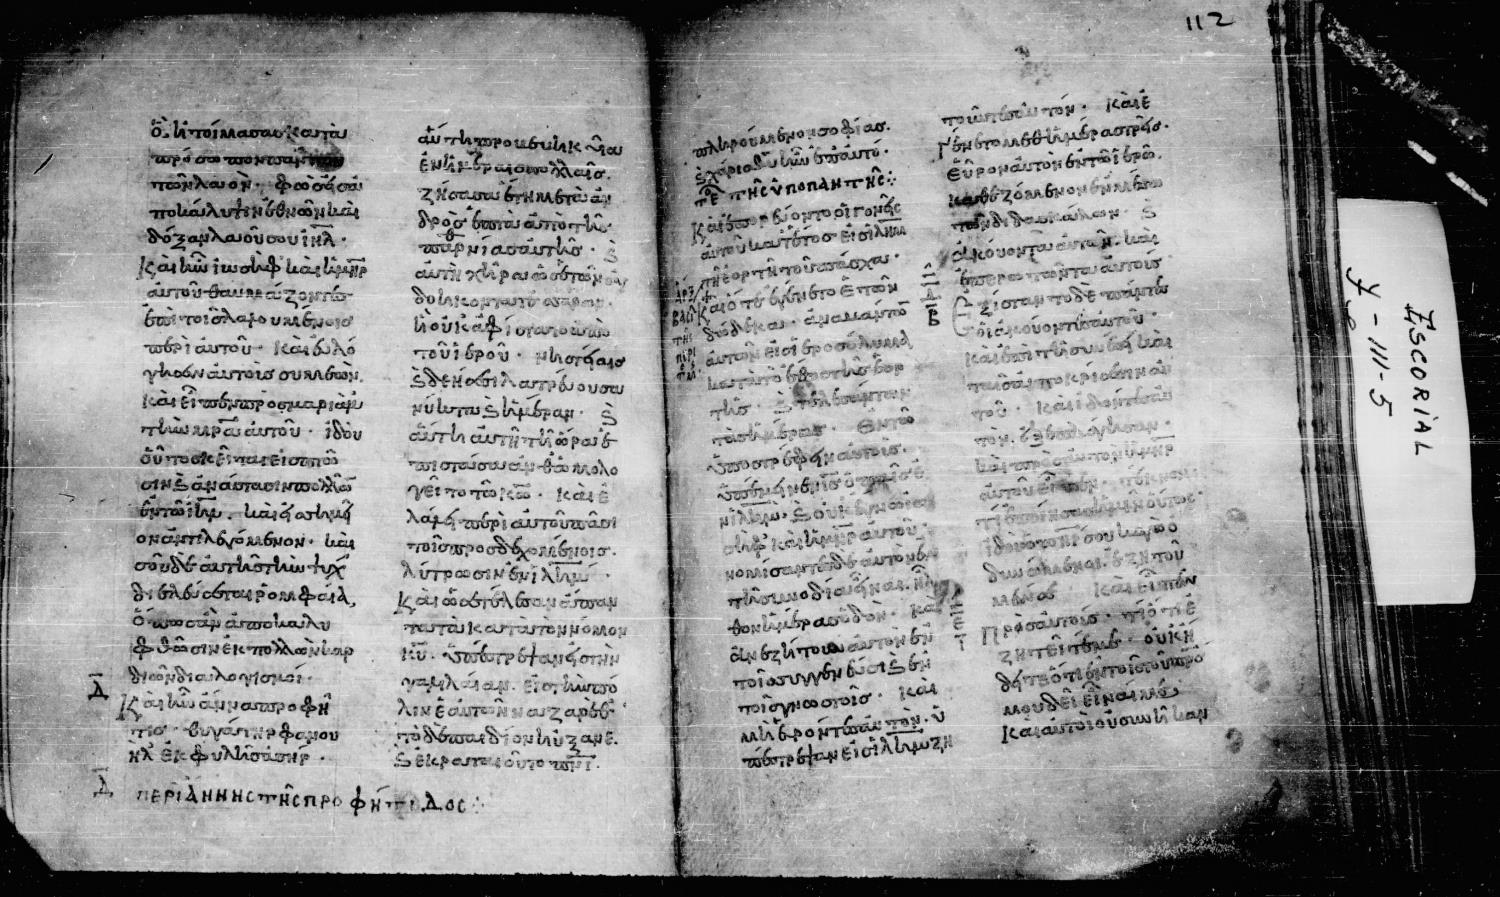 ὃ ἡτοίμασας κατὰ
πρόσωπον πάντων
τῶν λαῶν· φῶς εἰς ἀ
ποκάλυψιν ἐθνῶν καὶ
δόξαν λαοῦ σου ιηλ·
Καὶ ἦν ἰωσὴφ καὶ ἡ μηρ
αὐτοῦ θαυμάζοντες
ἐπὶ τοῖς λαλουμένοις
περὶ αὐτοῦ· καὶ εὐλό
γησεν αὐτοὺς συμεών.
καὶ εἶπεν προς μαριὰμ
τὴν μρα αὐτοῦ· ἰδοὺ
οὗτος κεῖται εἰς πτῶ
σιν κ ἀνάστασιν πολλῶν
ἐν τῶ ιηλ. καὶ εἰς σημεῖ
ον ἀντιλεγόμενον· καὶ
σοῦ δὲ αὐτῆς τὴν ψυχ
διελεύσεται ρομφαία,
ὅπως ἂν ἀποκαλυ
φθῶσιν ἐκ πολλῶν καρ
διῶν διαλογισμοί·
Δ
Καὶ ἦν ἄννα προφῆ
τις θυγάτηρ φανου
ὴλ ἐκ φυλῆς ἀσήρ·
Δ ΠΕΡΙ ΑΝΝΗΣ ΤΗΣ ΠΡΟΦΗΤΙΔΟΣ:
αὕτη προβεβηκυῖα
ἐν ἡμέραις πολλαῖς.
ζήσασα ἔτη μετὰ ἀν
δρὸς ἑπτὰ ἀπὸ τῆς
παρθενίας αὐτῆς· κ
αὐτὴ χήρα ὡς ἐτῶν ὀγ
δοήκοντα τεσσάρων.
ἣ οὐκ ἀφίστατο ἀπὸ
τοῦ ἱεροῦ· νηστείαις
κ δεήσεσι λατρεύουσα
νύκτα κ ἡμέραν· κ
αὕτη αὐτῆ τῆ ὥρα ἐ
πιστᾶσα ἀνθωμολο
γεῖτο τῶ κω· καὶ ἐ
λάλει περὶ αὐτοῦ πᾶσι
τοῖς προσδεχομένοις.
λύτρωσιν ἐν ιλημ·
Καὶ ὡς ἐτέλεσαν ἅπαν
τα τὰ κατὰ τὸν νόμον
κυ· ὑπέστρεψαν εἰς τὴν
γαλιλαίαν. εἰς τὴν πό
λιν ἑαυτῶν ναζαρέθ·
τὸ δὲ παιδίον ηὔξανε.
κ ἐκραταιοῦτο πνι·
112
πληρούμενον σοφίας.
κ χάρις θυ ἦν ἐπ' αὐτό·
ΤΕ ΤΗΣ ΥΠΟΠΑΝΤΗΣ:
Καὶ ἐπορεύοντο οἱ γονεῖς
αὐτοῦ κατ' ἔτος εἰς ιλημ
τῆ ἑορτῆ τοῦ πάσχα·
Καὶ ὅτε ἐγένετο ἐτῶν
δώδεκα· ἀναβάντων
αὐτῶν εἰς ἱεροσόλυμα
κατὰ τὸ ἔθος τῆς ἑορ
τῆς· κ τελειωσάντων
τὰς ἡμέρας· ἐν τῶ
ὑποστρέφειν αὐτούς.
ὑπέμεινεν ις ὁ παῖς ἐ
ν ιλημ. κ οὐκ ἔγνω ἰω
σὴφ καὶ ἡ μηρ αὐτοῦ·
νομίσαντες δὲ αὐτὸν ἐν
τῆ συνοδία εἶναι. ἦλ
θον ἡμέρας ὁδὸν· καὶ
ἀνεζήτουν αὐτὸν ἐν
τοῖς συγγενέσι κ ἐν
τοῖς γνωστοῖς· καὶ
μὴ εὑρόντες αὐτὸν· ὑ
πέστρεψαν εἰς ιλημ ζη
τοῦντες αὐτόν· καὶ ἐ
γένετο μεθ' ἡμέρας τρεῖς·
εὗρον αὐτὸν ἐν τῶ ἱερῶ.
καθεζόμενον ἐν μέσω
τῶν διδασκάλων· κ
ἀκούοντα αὐτῶν. καὶ
ἐπερωτῶντα αὐτούς·
Ἐξίσταντο δὲ πάντες
οἱ ἀκούοντες αὐτοῦ·
καὶ ἐπὶ τῆ συνέσει καὶ
ταῖς ἀποκρίσεσιν αὐ
τοῦ· καὶ ἰδόντες αὐ
τὸν, ἐξεπλάγησαν·
καὶ πρὸς αὐτὸν ἡ μηρ
αὐτοῦ εἶπεν· τέκνον
τί ἐποίησας ἡμῖν οὕτως·
ἰδοὺ ὁ πηρ σου κἀγὼ
ὀδυνώμενοι ἐζητοῦ
μέν σε· καὶ εἶπεν
Πρὸς αὐτούς· τί ὅτι ἐ
ζητεῖτέ με· οὐκ ἤ
δειτε ὅτι ἐν τοῖς τοῦ πρσ
μου δεῖ εἶναί με·
Καὶ αὐτοὶ οὐ συνῆκαν
ESCORIAL
Y-III-5